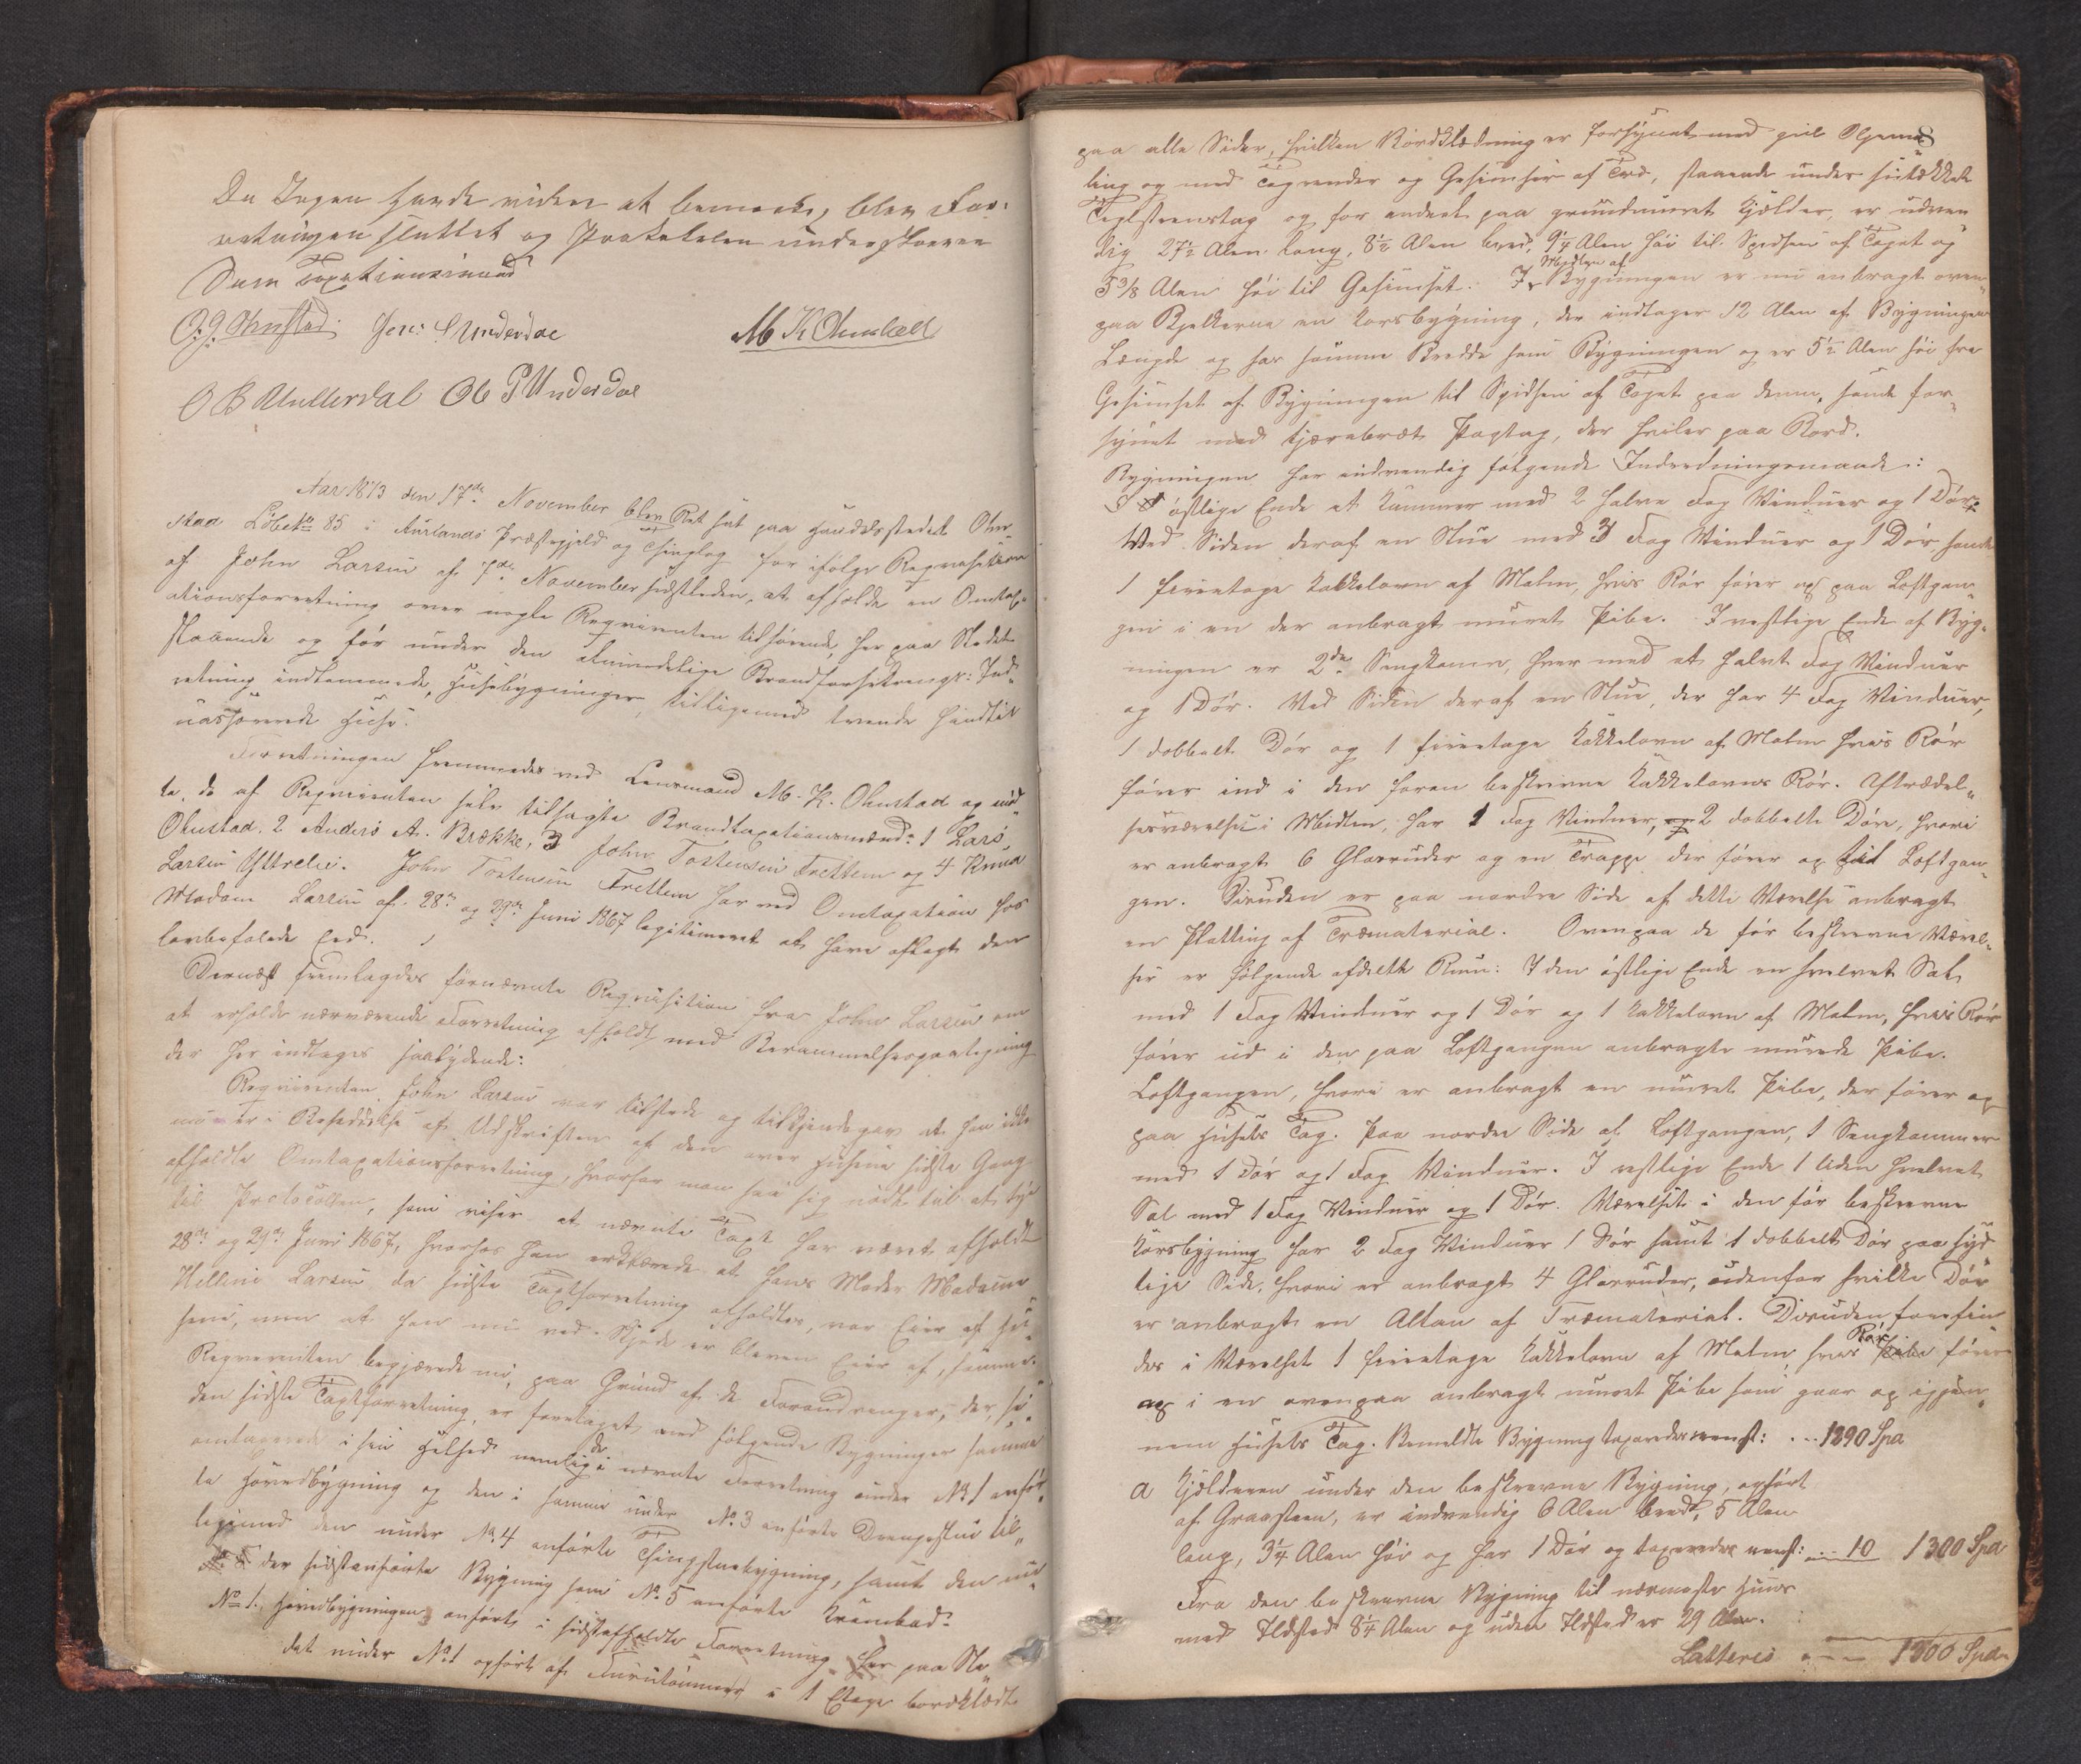 Da Ingen havde videre at bemærke, blev For-
retningen sluttet og Protokolen underskreven
Som Taxationsmænd
O. J. Ohnstad. Jens L Underdae M K Ohnstad
O B Underdal Ole P Underdae
Aar 1873 den 17de November blev Ret sat paa Handelsstedet Ohn-
stad Løbeno 85 i Aurlands Præstegjeld og Thinglag for ifølge Requisition
af John Larsen af 7de November sidstleden, at afholde en Omtax-
ationsforretning over nogle Requirenten tilhørende, her paa Stedet
staaende og før under den almindelige Brandforsikrings-Ind-
retning indlemmede Husebygninger, tilligemed tvende hindtil
uassurerede Huse.
Forretningen fremmedes ved Lensmand M. K. Ohnstad og med
te, de af Requirenten selv tilsagte Brandtaxationsmænd: 1 Lars
Ohnstad. 2 Anders A. Brække, 3 John Tostensen Frettem og 4 Knud
Larsen Ytreli. John Tostensen Frettem har ved Omtaxation hos
Madam Larsen af 28de og 29de Juni 1867 legitimeret at have aflagt den
lovbefalede Eed.
Dernæst fremlagdes fornævnte Requisition fra John Larsen om
at erholde nærværende Forretning afholdt med Berammelsespaategning
der her indtages saalydende:
Requirenten John Larsen var tilstede og tilkjendegav at han ikke
nu er i Besiddelse af Udskriften af den over Husene sidste Gang
afholdte Omtaxationsforretning, hvorfor man saa sig nødt til at tye
til Protocollen, som viser at nævnte Taxt har været afholdt
28de og 29de Juni 1867, hvorhos han erklærede at hans Moder Madame
Helline Larsen da sidste Taxtforretning afholdtes, var Eier af Hu-
sene, men at han nu ved Skjøde er bleven Eier af samme.
Requirenten begjærede nu, paa Grund af de Forandringer, der, si-
den sidste Taxtforretning, er foretaget med følgende Bygninger samme
omtaxerede i sin Helhed nemlig: de i nævnte Forretning under No 1 anfør-
te Hovedbygning og den i samme under No 3 anførte Drengestue til-
ligemed den under No 4 anførte Thingstuebygning, samt den nu
der sidstanførte Bygning som No 5 anførte Krambod.
No 1. Hovedbygningen anført i sidstafholdte Forretning her paa Ste-
det under No 1 opført af Furutømmer i 1 Etage bordklædt
8
paa alle Sider, hvilken Bordklædning er forsynet med guul Oljema-
ling og med Tagrender og Gesimser af Træ, staaende under heltækket
Teglsteenstag og for endeel paa grundmuret Kjelder, er udven
dig 27½ Alen lang, 8½ Alen bred, 9¼ Alen høi til Spidsen af Taget og
5⅜ Alen høi til Gesimset. I Midten af Bygningen er nu anbragt oven-
paa Bjelkerne en Korsbygning, der indtager 12 Alen af Bygningens
Længde og har samme Bredde som Bygningen og er 5½ Alen høi fra
Gesimset af Bygningen til Spidsen af Taget paa denne, samt for-
synet med tjærebræt Paptag, der hviler paa Bord.
Bygningen har indvendig følgende Indredningsmaade:
I østlige Ende et Kammer med 2 halve Fag Vinduer og 1 Dør.
Ved Siden deraf en Stue med 3 Fag Vinduer og 1 Dør samt
1 fireetage Kakkelovn af Malm, hvis Rør fører op paa Loftgan-
gen i en der anbragt muret Pibe. I vestlige Ende af Byg-
ningen er 2de Sengkamre, hver med et halvt Fag Vinduer
og 1 Dør. Ved Siden deraf en Stue, der har 4 Fag Vinduer,
1 dobbelt Dør og 1 fireetage Kakkelovn af Malm hvis Rør
fører ind i den foran beskrevne Kakkelovns Rør. Iftrædel-
sesværelset i Midten, har 1 Fag Vinduer, og 2 dobbelte Døre, hvori
er anbragt 6 Glasruder og en Trappe der fører op til Loftgan-
gen. Desuden er paa nordre Side af dette Værelse anbragt
en Platting af Træmateriale. Ovenpaa de før beskrevne Værel-
ser er følgende afdelte Rum: I den østlige Ende en hvelvet Sal
med 1 Fag Vinduer og 1 Dør og 1 Kakkelovn af Malm, hvis Rør
fører ud i den paa Loftgangen anbragte murede Pibe.
Loftgangen, hvori er anbragt en muret Pibe, der fører op
paa Husets Tag. Paa nordre Side af Loftgangen, 1 Sengkammer
med 1 Dør og 1 Fag Vinduer. I vestlige Ende 1 liden hvelvet
Sal med 1 Fag Vinduer og 1 Dør. Værelset i den før beskrevne
Korsbygning har 2 Fag Vinduer 1 Dør samt 1 dobbelt Dør paa syd-
lige Side, hvori er anbragt 4 Glasruder, udenfor hvilke Dør
er anbragt en Altan af Træmaterial. Desuden forefin
des i Værelset 1 fireetage Kakkelovn af Malm hvis Rør Pibe fører
op i en ovenpaa anbragt muret Pibe som gaar op igjen-
nem Husets Tag. Bemeldte Bygning taxeredes eenst: ... 1290 Spd
a Kjelderen under den beskrevne Bygning, opført
af Graasteen, er indvendig 6 Alen bred, 5 Alen
lang, 3¼ Alen høi og har 1 Dør og taxeredes eenst: ... 10 1300 Spd
Fra den beskrevne Bygning til nærmeste Huus
med Ildsted 8¼ Alen og uden Ildsted er 29 Alen.
Latteris --- 1300 Spd